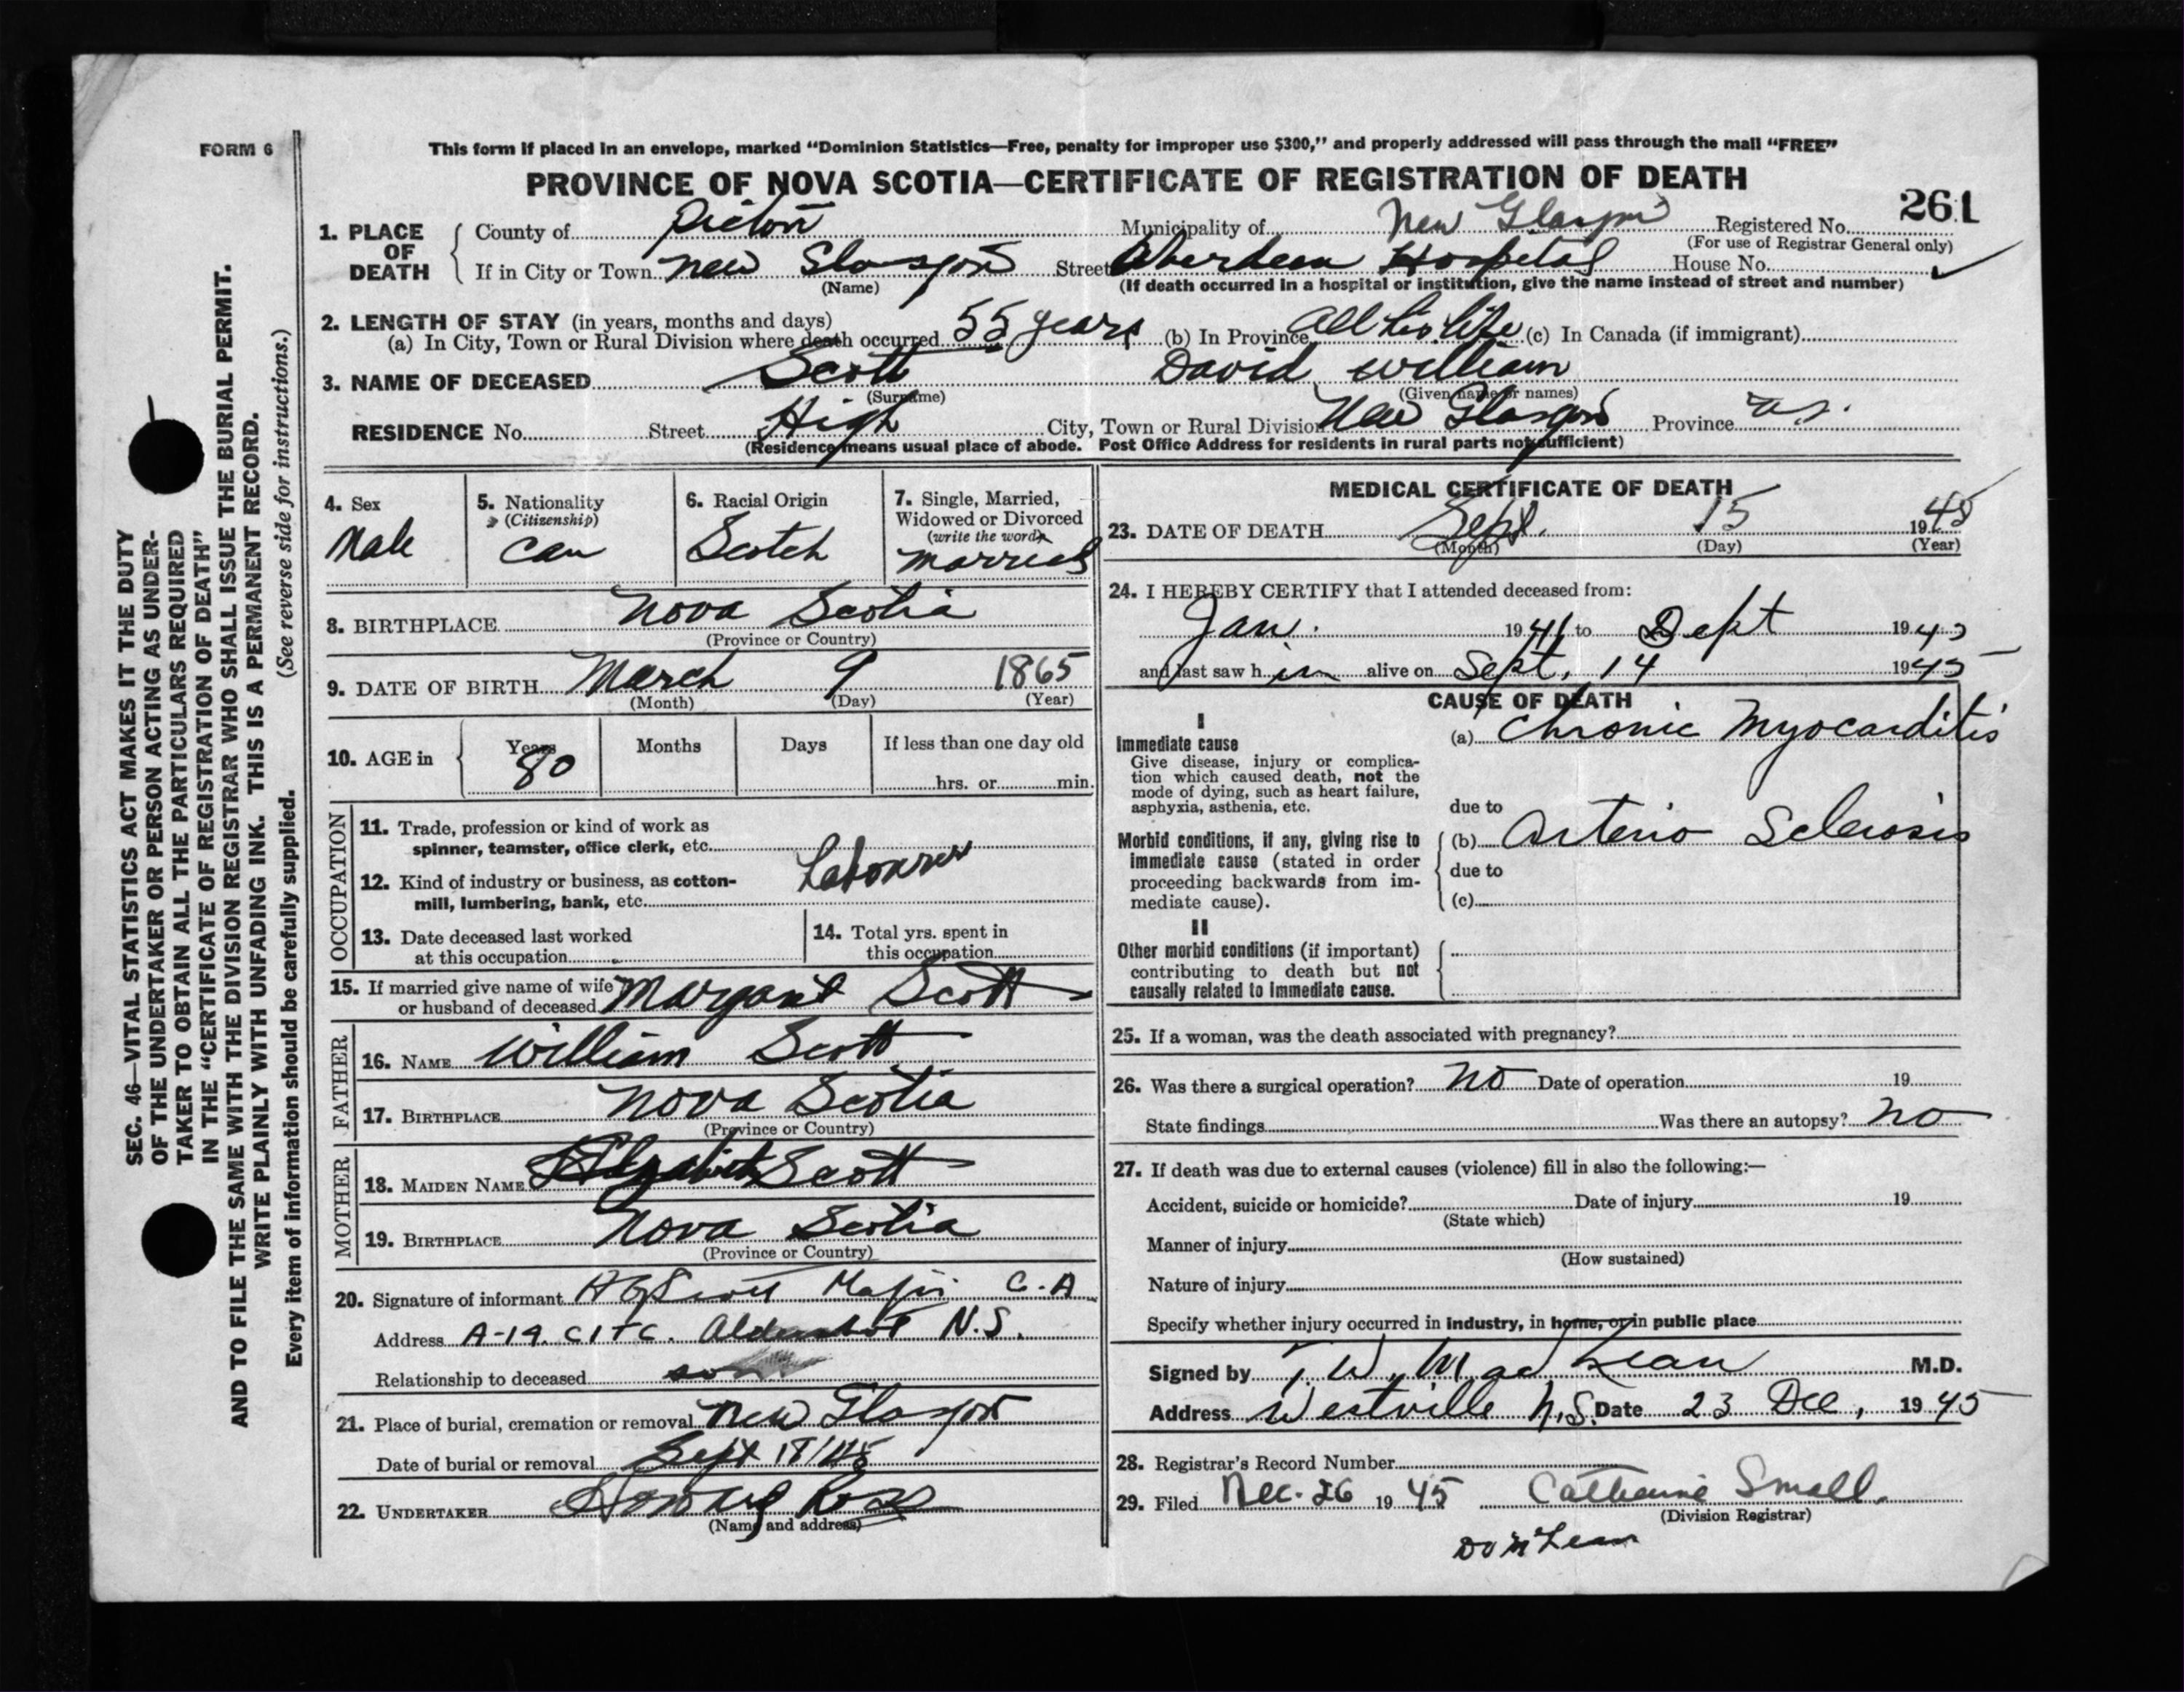 FORM 6
This form if placed in an envelope, marked “Dominion Statistics—Free, penalty for improper use $300,” and properly addressed will pass through the mail “FREE”
PROVINCE OF NOVA SCOTIA—CERTIFICATE OF REGISTRATION OF DEATH
261
1. PLACE OF DEATH
County of Pictou Municipality of New Glasgow Registered No.
(For use of Registrar General only)
If in City or Town New Glasgow Street Aberdeen Hospital House No.
(Name) (If death occurred in a hospital or institution, give the name instead of street and number)
2. LENGTH OF STAY (in years, months and days)
(a) In City, Town or Rural Division where death occurred 55 years (b) In Province All his life (c) In Canada (if immigrant)
3. NAME OF DECEASED Scott David William
(Surname) (Given name or names)
RESIDENCE No. Street High City, Town or Rural Division New Glasgow Province N.S.
(Residence means usual place of abode. Post Office Address for residents in rural parts not sufficient)
4. Sex
Male
5. Nationality
(Citizenship)
Can
6. Racial Origin
Scotch
7. Single, Married,
Widowed or Divorced
(write the word)
Married
8. BIRTHPLACE Nova Scotia
(Province or Country)
9. DATE OF BIRTH March 9 1865
(Month) (Day) (Year)
10. AGE in
Years
80
Months
Days
If less than one day old
hrs. or min.
OCCUPATION
11. Trade, profession or kind of work as
spinner, teamster, office clerk, etc.
Labourer
12. Kind of industry or business, as cotton-
mill, lumbering, bank, etc.
13. Date deceased last worked
at this occupation
14. Total yrs. spent in
this occupation
15. If married give name of wife
or husband of deceased Margaret Scott
FATHER
16. NAME William Scott
17. BIRTHPLACE Nova Scotia
(Province or Country)
MOTHER
18. MAIDEN NAME Elizabeth Scott
19. BIRTHPLACE Nova Scotia
(Province or Country)
20. Signature of informant Scott Major C.A
Address A-14 CITC. Aldershot N.S.
Relationship to deceased son
21. Place of burial, cremation or removal New Glasgow
Date of burial or removal Sept 18/45
22. UNDERTAKER Howard Ross
(Name and address)
MEDICAL CERTIFICATE OF DEATH
23. DATE OF DEATH Sept. 15 1945
(Month) (Day) (Year)
24. I HEREBY CERTIFY that I attended deceased from:
Jan. 1941 to Sept 1945
and last saw him alive on Sept. 14 1945
CAUSE OF DEATH
I
Immediate cause
Give disease, injury or complica-
tion which caused death, not the
mode of dying, such as heart failure,
asphyxia, asthenia, etc.
(a) Chronic Myocarditis
due to
Morbid conditions, if any, giving rise to
immediate cause (stated in order
proceeding backwards from im-
mediate cause).
(b) Arterio Sclerosis
due to
(c)
II
Other morbid conditions (if important)
contributing to death but not
causally related to immediate cause.
25. If a woman, was the death associated with pregnancy?
26. Was there a surgical operation? No Date of operation 19
State findings Was there an autopsy? No
27. If death was due to external causes (violence) fill in also the following:—
Accident, suicide or homicide? Date of injury 19
(State which)
Manner of injury
(How sustained)
Nature of injury
Specify whether injury occurred in industry, in home, or in public place
Signed by T. W. MacLean M.D.
Address Westville N.S. Date 23 Dec, 1945
28. Registrar's Record Number
29. Filed Dec. 26 1945 Catherine Small
(Division Registrar)
SEC. 46—VITAL STATISTICS ACT MAKES IT THE DUTY
OF THE UNDERTAKER OR PERSON ACTING AS UNDER-
TAKER TO OBTAIN ALL THE PARTICULARS REQUIRED
IN THE “CERTIFICATE OF REGISTRATION OF DEATH”
AND TO FILE THE SAME WITH THE DIVISION REGISTRAR WHO SHALL ISSUE THE BURIAL PERMIT.
WRITE PLAINLY WITH UNFADING INK. THIS IS A PERMANENT RECORD.
Every item of information should be carefully supplied. (See reverse side for instructions.)